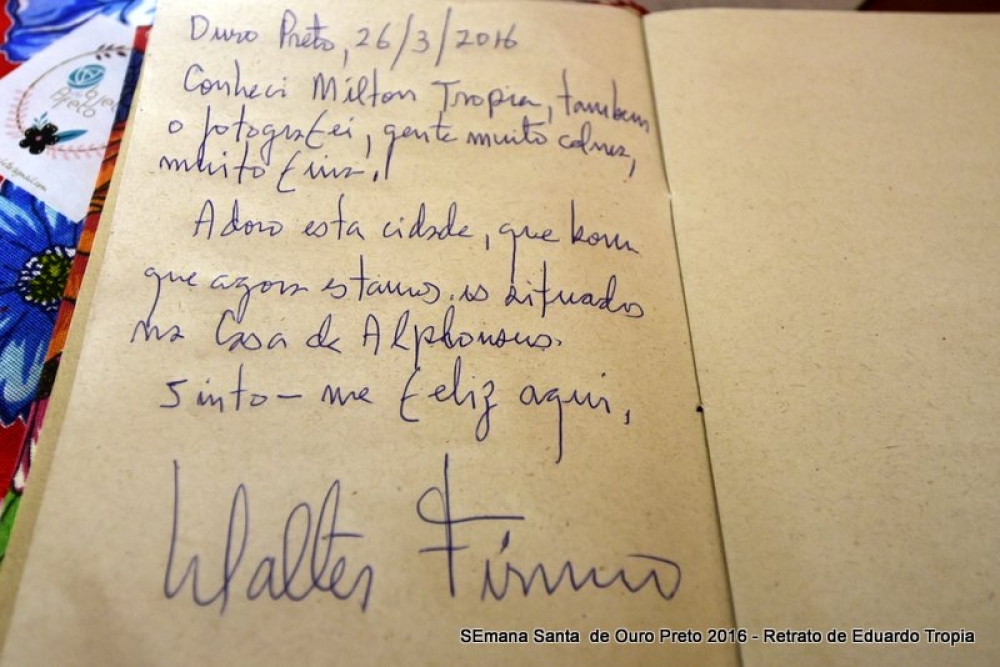 Ouro Preto, 26/3/2016
Conheci Milton Tropia, tambem
o fotografei, gente muito calma,
muito fina.!
Adoro esta cidade, que bom
que agora estamos situados
na Casa de Alphonsus.
Sinto-me feliz aqui,
Walter Firmo
Preto
SEmana Santa de Ouro Preto 2016 - Retrato de Eduardo Tropia